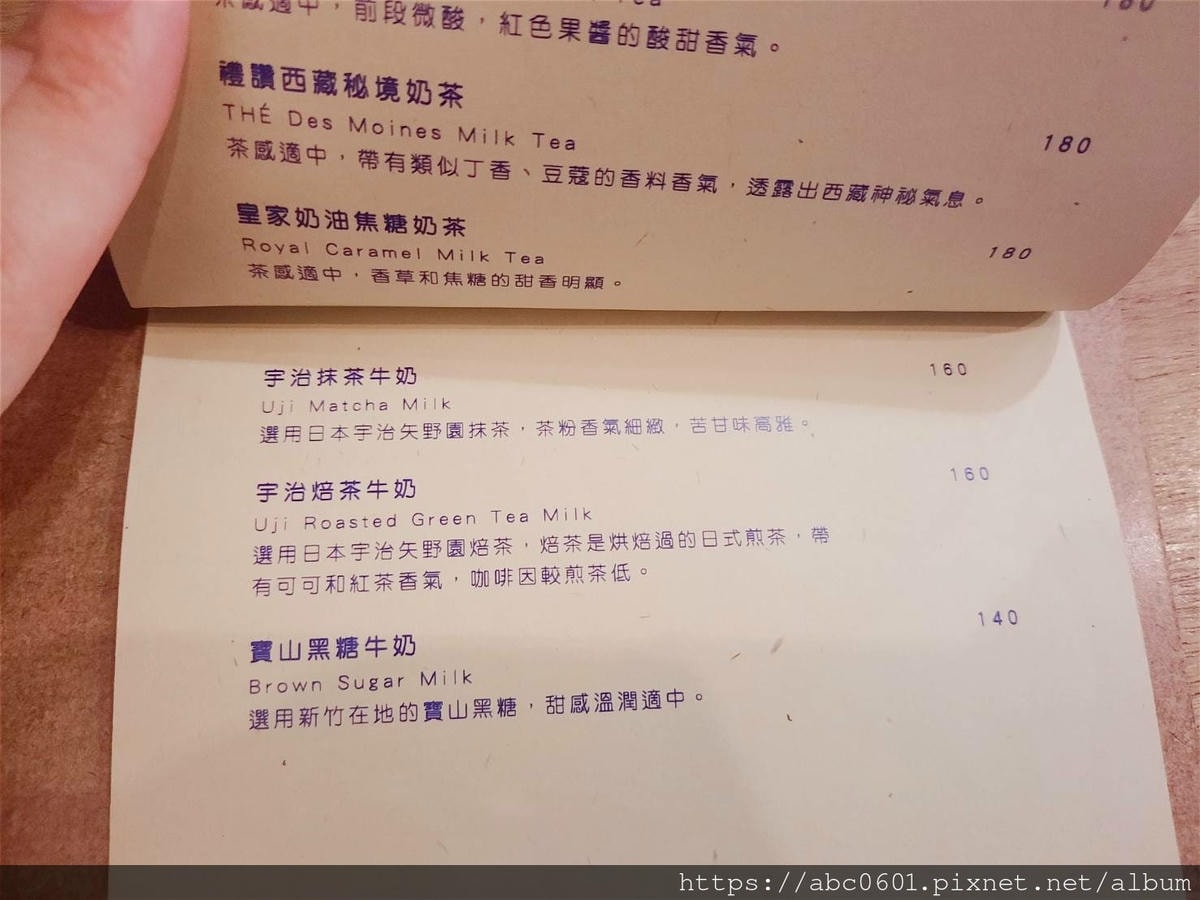 茶感適中，前段微酸，紅色果醬的酸甜香氣。
180
禮讚西藏秘境奶茶
THÉ Des Moines Milk Tea
180
茶感適中，帶有類似丁香、豆蔻的香料香氣，透露出西藏神祕氣息。
皇家奶油焦糖奶茶
Royal Caramel Milk Tea
180
茶感適中，香草和焦糖的甜香明顯。
宇治抹茶牛奶
160
Uji Matcha Milk
選用日本宇治矢野園抹茶，茶粉香氣細緻，苦甘味高雅。
宇治焙茶牛奶
160
Uji Roasted Green Tea Milk
選用日本宇治矢野園焙茶，焙茶是烘焙過的日式煎茶，帶
有可可和紅茶香氣，咖啡因較煎茶低。
寶山黑糖牛奶
140
Brown Sugar Milk
選用新竹在地的寶山黑糖，甜感溫潤適中。
https://abc0601.pixnet.net/album